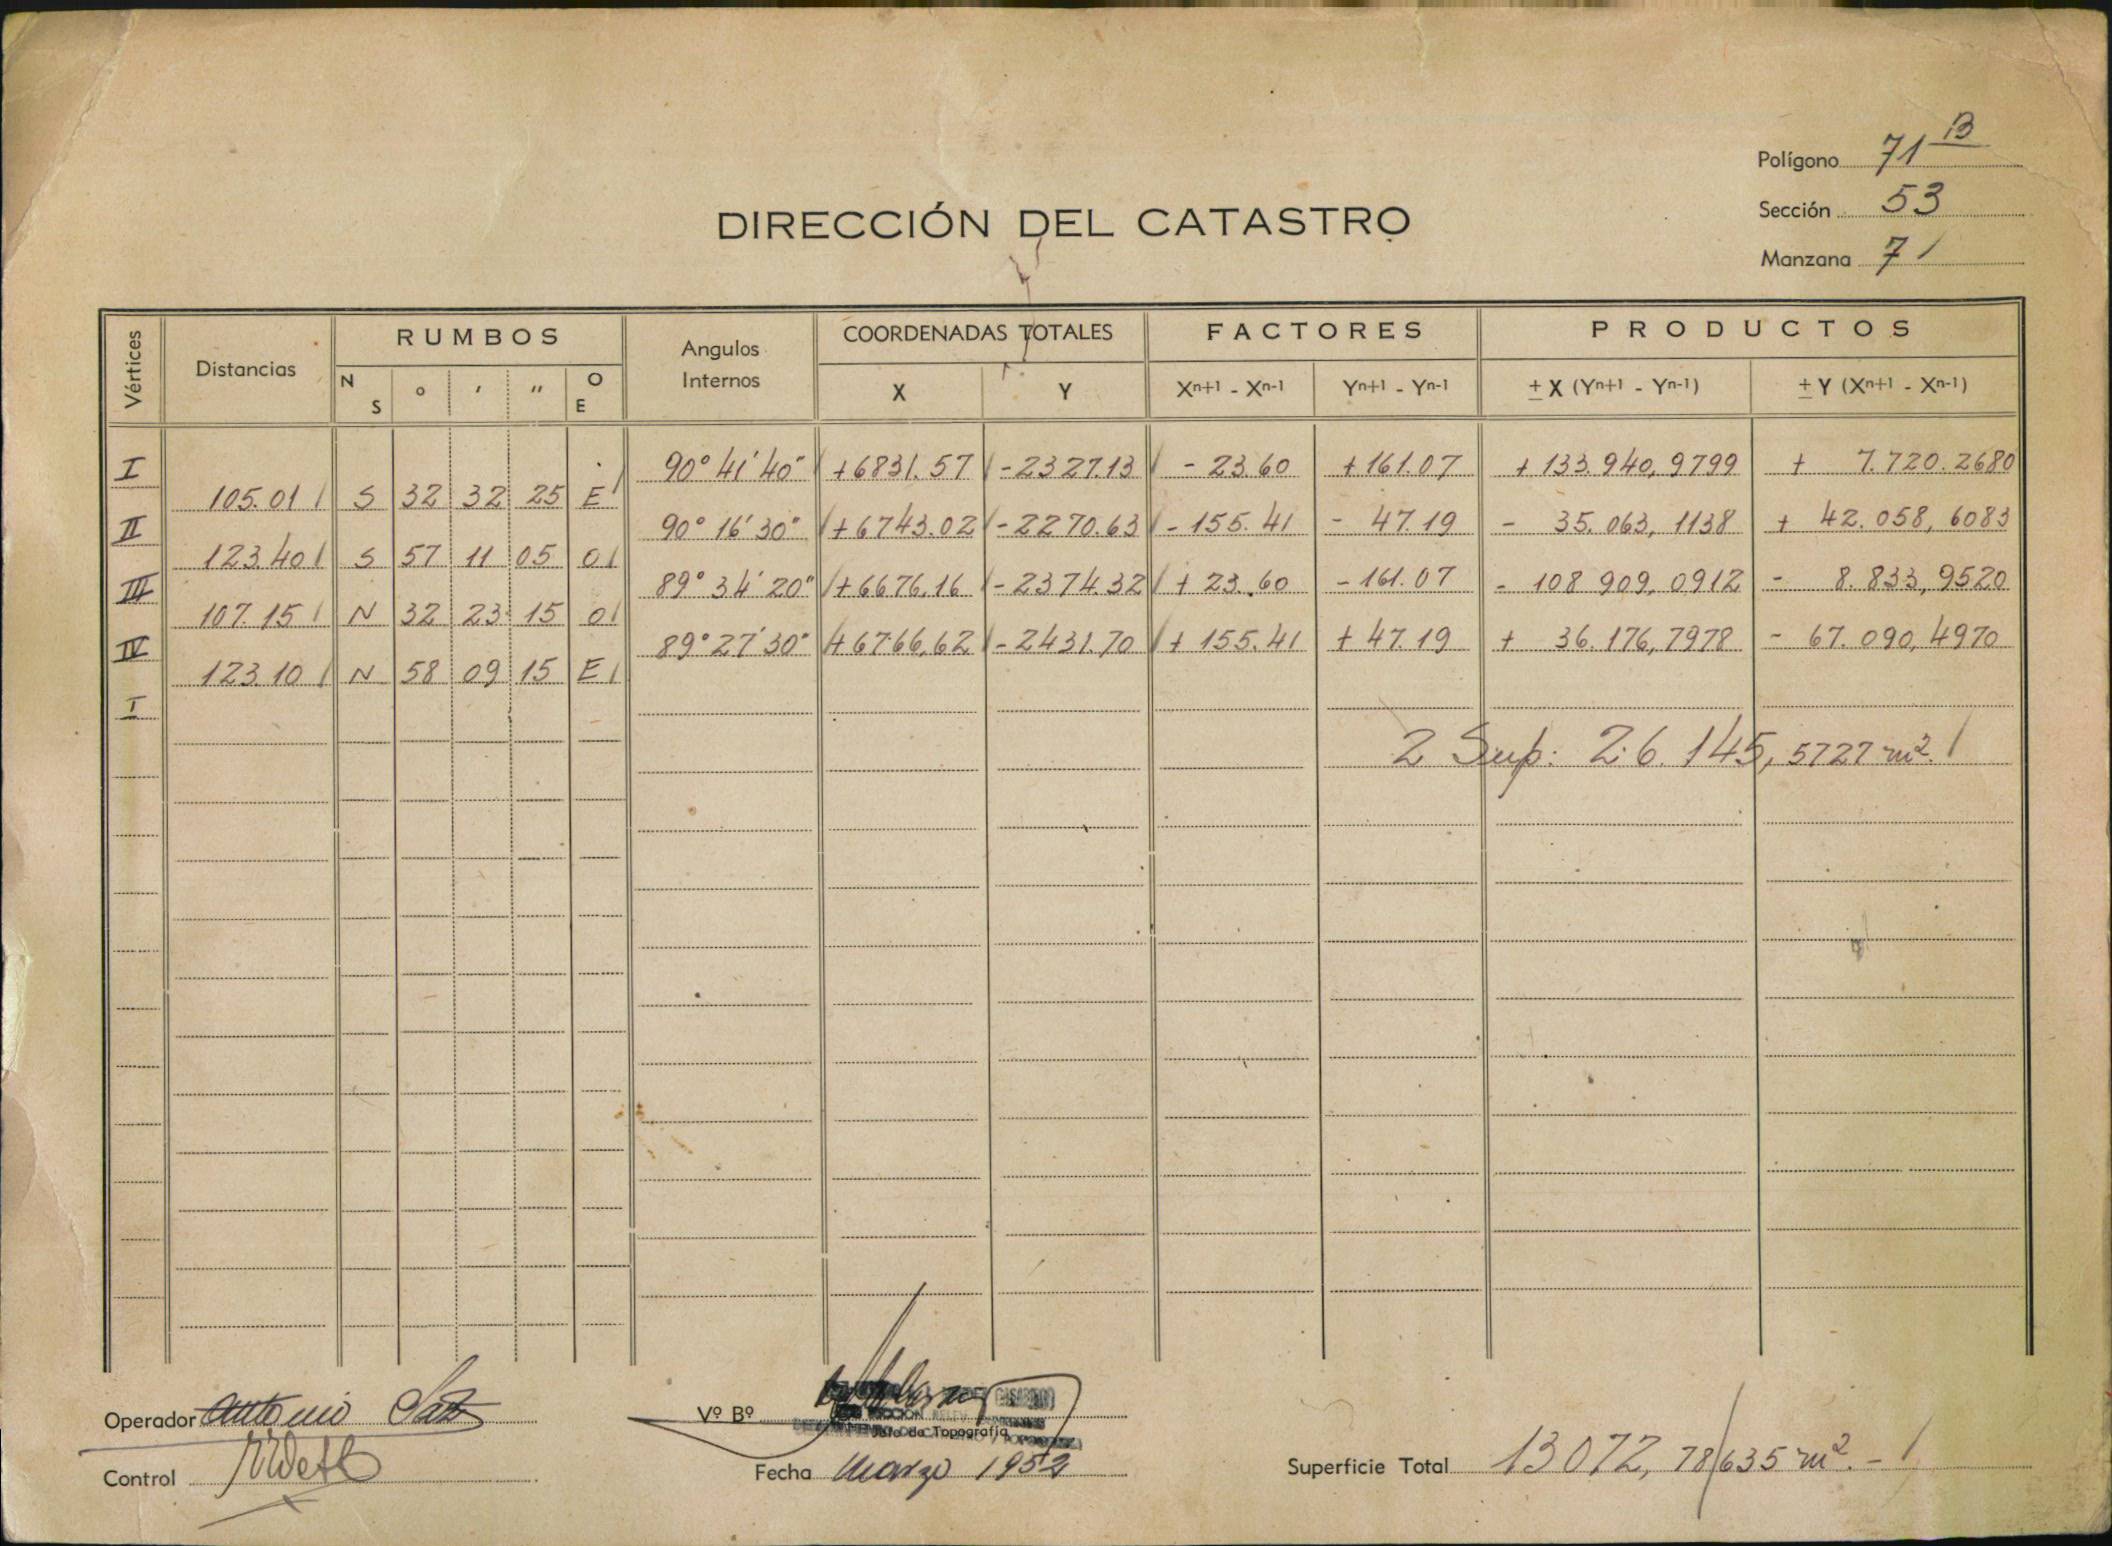 Polígono 71 B
Sección 53
Manzana 71
DIRECCIÓN DEL CATASTRO
Vértices Distancias RUMBOS Angulos Internos COORDENADAS TOTALES FACTORES PRODUCTOS
N S ° ' " O E X Y Xn+1 - Xn-1 Yn+1 - Yn-1 ± X (Yn+1 - Yn-1) ± Y (Xn+1 - Xn-1)
I 90° 41' 40" +6831.57 -2327.13 - 23.60 +161.07 + 133.940,9799 + 7.720.2680
105.01 S 32 32 25 E
II 90° 16' 30" +6743.02 -2270.63 - 155.41 - 47.19 - 35.063,1138 + 42.058,6083
123.40 S 57 11 05 O
III 89° 34' 20" +6676.16 -2374.32 + 23.60 -161.07 - 108 909,0912 - 8.833,9520
107.15 N 32 23 15 O
IV 89° 27' 30" +6766,62 -2431.70 + 155.41 + 47.19 + 36.176,7978 - 67.090,4970
123.10 N 58 09 15 E
I
2 Sup: 26.145,5727 m².
Operador Antonio
Vº Bº
Jefe de Topografía
Control
Fecha Marzo 1952
Superficie Total 13072,78/635 m².-